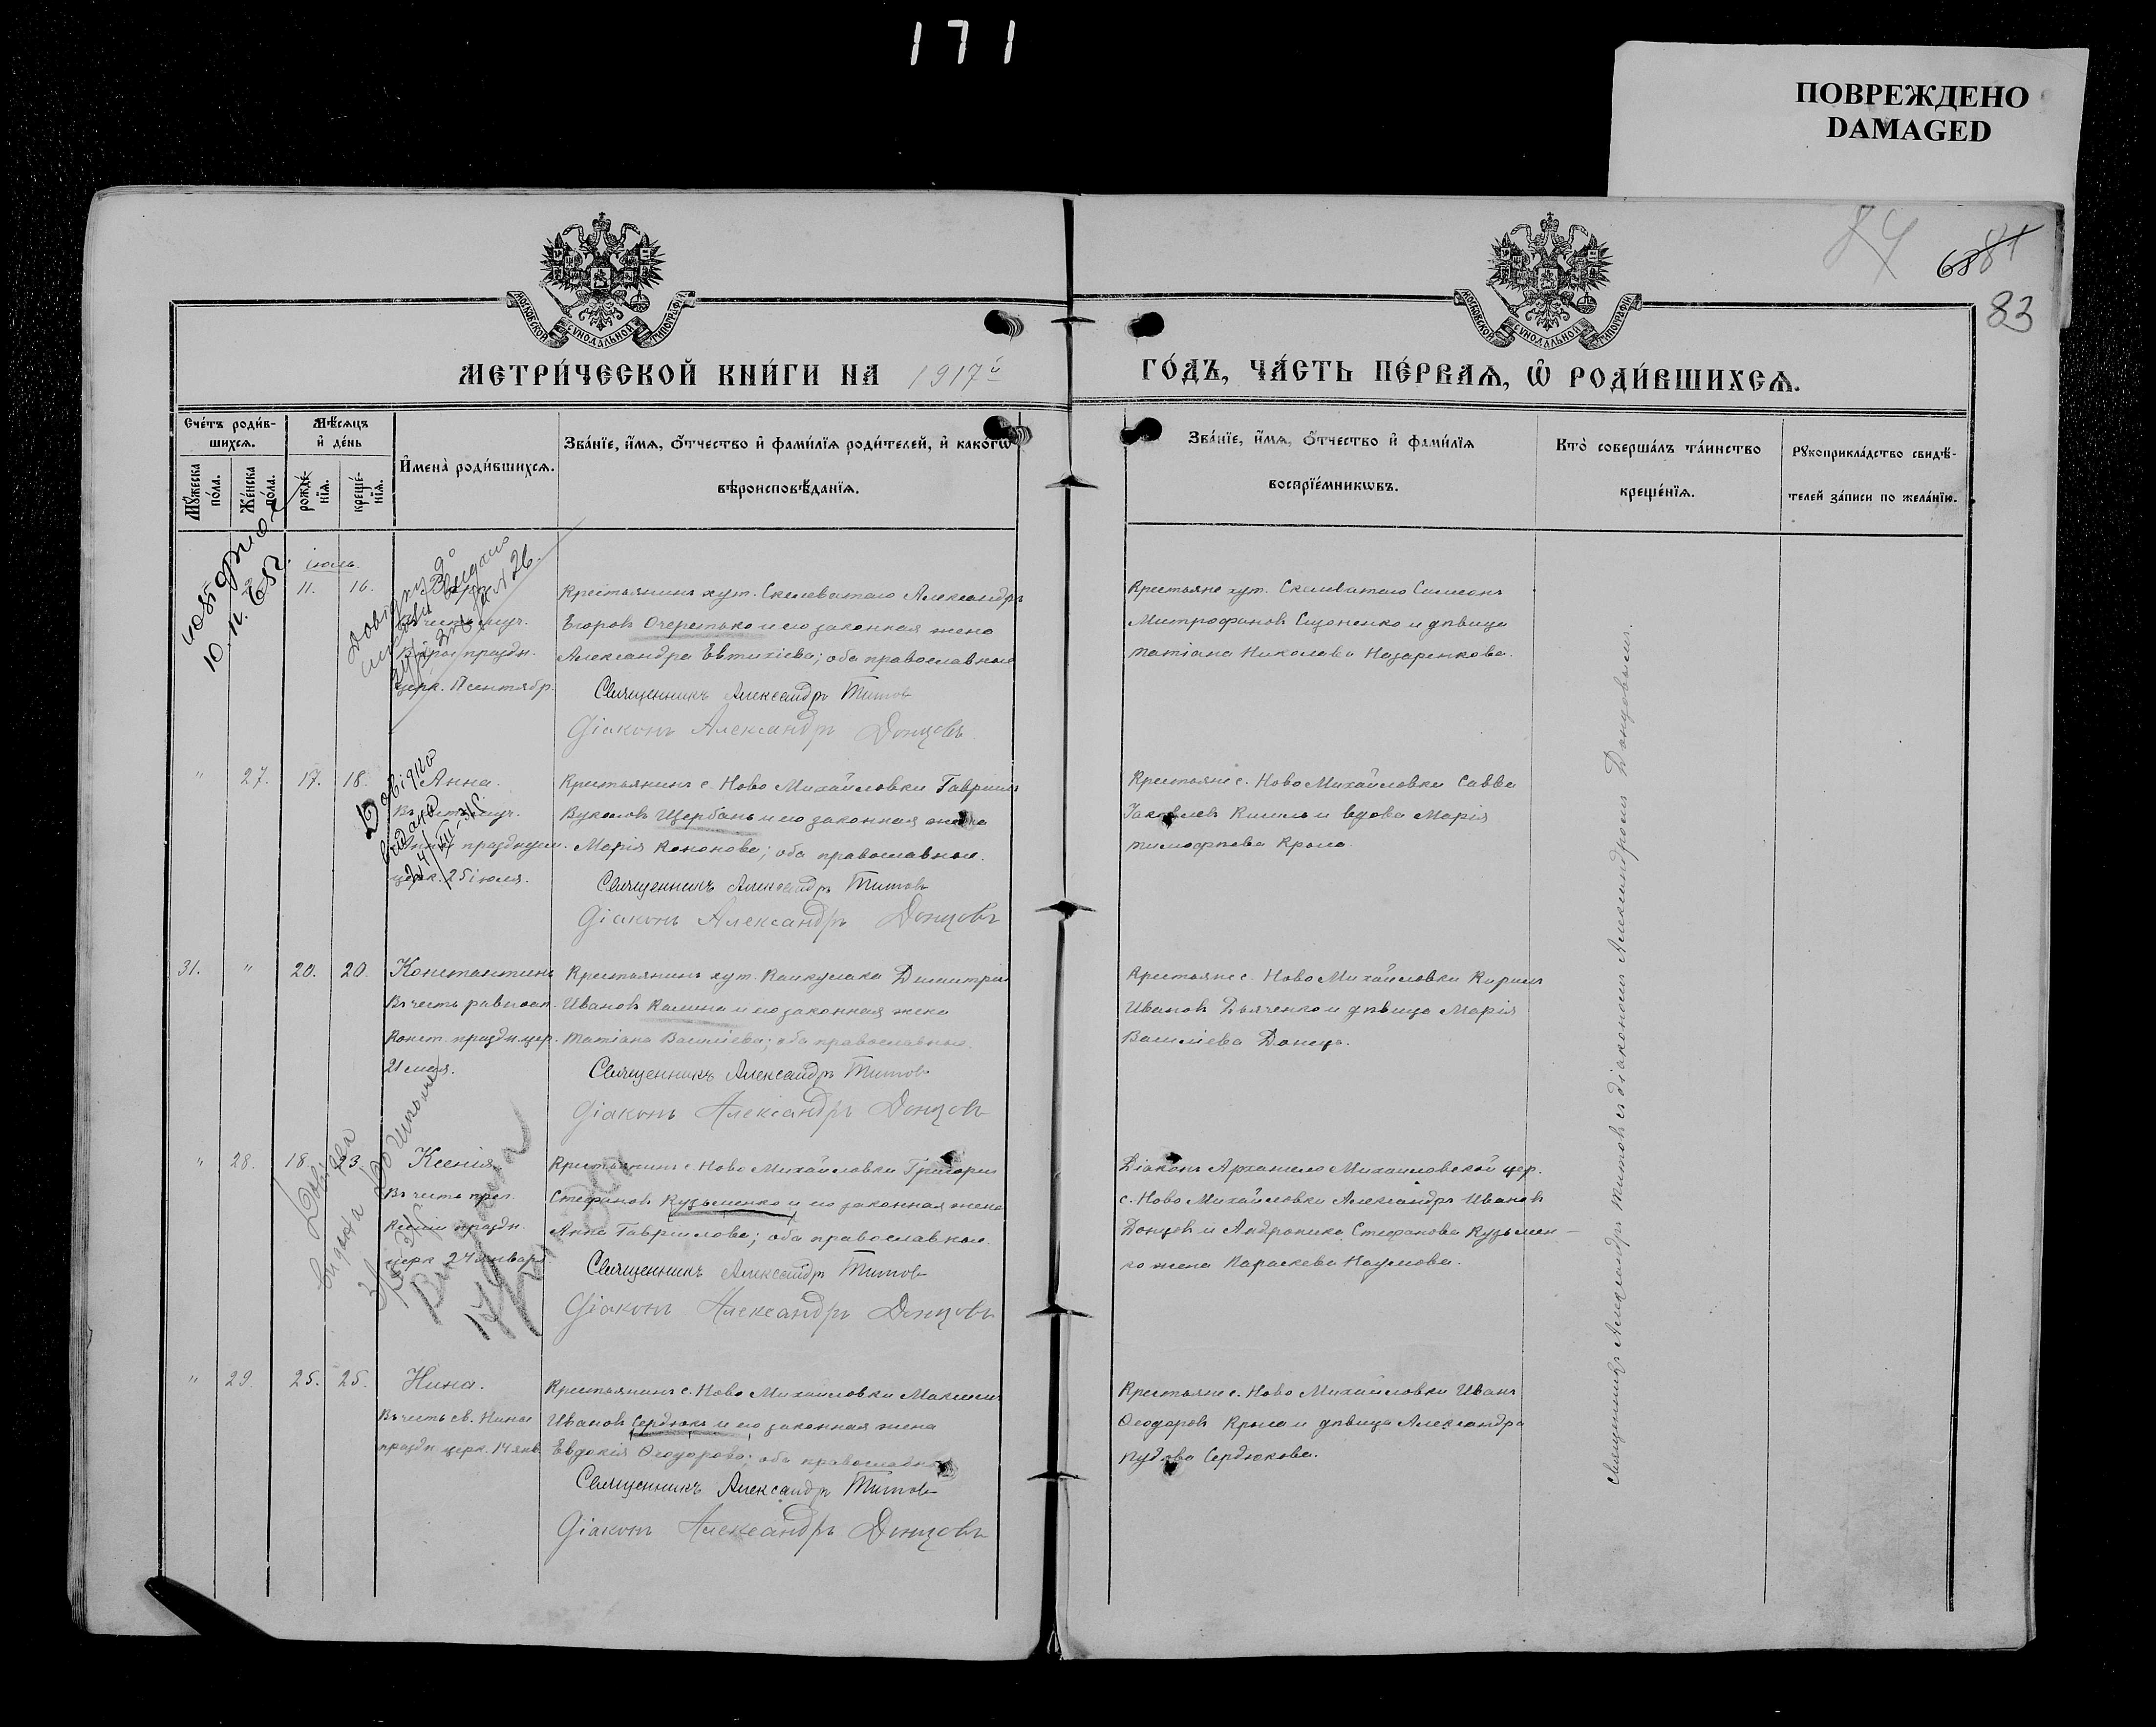 171
ПОВРЕЖДЕНО
DAMAGED
84
68 81
83
МОСКОВСКОЙ СУНОДАЛЬНОЙ ТИПОГРАФІИ
МОСКОВСКОЙ СУНОДАЛЬНОЙ ТИПОГРАФІИ
МЕТРИ́ЧЕСКОЙ КНИ́ГИ НА 1917й
ГО́ДЪ, ЧА́СТЬ ПЕ́РВАѦ, Ѡ РОДИ́ВШИХСѦ.
Сче́тъ роди́в-
шихсѧ.
Мꙋ́жеска
по́ла.
Же́нска
по́ла.
Мѣ́сѧцъ
и҆ де́нь
рожде́-
нїѧ.
креще́-
нїѧ.
И҆мена̀ роди́вшихсѧ.
Зва́нїе, и҆́мѧ, ѻ҆́тчество и҆ фами́лїѧ роди́телей, и҆ какого̀
вѣроисповѣ́данїѧ.
Зва́нїе, и҆́мѧ, ѻ҆́тчество и҆ фами́лїѧ
воспрїе́мникѡвъ.
Кто̀ соверша́лъ та́инство
креще́нїѧ.
Рꙋкоприкла́дство свидѣ́-
телей за́писи по жела́нїю.
іюль.
11. 16.
праздн.
церк. 17 сентябр.
Крестьянинъ хут. Скелеватаго Александръ
Егоровъ Очеретько и его законная жена
Александра Евтихіева; оба православные
Священникъ Александръ Титовъ
Діаконъ Александръ Донцовъ
Крестьяне хут. Скелеватаго Симеонъ
Митрофановъ Сизоненко и дѣвица
Татіана Николаева Назаренкова.
" 27. 17. 18. Анна.
празднуем.
церк. 25 іюля.
Довідка
видана
Крестьянинъ с. Ново Михайловки Гавріилъ
Вуколовъ Щербань и его законная жена
Марія Кононова; оба православные.
Священникъ Александръ Титовъ
Діаконъ Александръ Донцовъ
Крестьяне с. Ново Михайловки Савва
Іаковлевъ и вдова Марія
Тимофѣева Крыла.
31. " 20. 20. Константинъ
Въ честь равноап.
Конст. праздн. цер.
21 мая.
Крестьянинъ хут. Камкулака Димитрій
Ивановъ Калина и его законная жена
Татіана Василіева; оба православные.
Священникъ Александръ Титовъ
Діаконъ Александръ Донцовъ
Крестьяне с. Ново Михайловки Кириллъ
Ивановъ Дьяченко и дѣвица Марія
Василіева Донецъ.
" 28. 18 23. Ксенія.
Въ честь преп.
Ксеніи праздн.
церк 24 января.
Крестьянинъ с. Ново Михайловки Григорій
Стефановъ Кузьменко и его законная жена
Анна Гавріилова; оба православные.
Священникъ Александръ Титовъ
Діаконъ Александръ Донцовъ
Діаконъ Архангело Михаиловской цер.
с. Ново Михайловки Александръ Ивановъ
Донцовъ и Андроника Стефанова Кузьмен-
ко жена Параскева Наумова.
" 29. 25. 25. Нина.
Въ честь св. Нины
праздн церк. 14 янв.
Крестьянинъ с. Ново Михайловки Максимъ
Ивановъ Сердюкъ и его законная жена
Евдокія Ѳеодорова; оба православные
Священникъ Александръ Титовъ
Діаконъ Александръ Донцовъ
Крестьяне с. Ново Михайловки Иванъ
Ѳеодоровъ Крыла и дѣвица Александра
Сердюкова.
Священникъ Александръ Титовъ съ діакономъ Александромъ Донцовымъ.